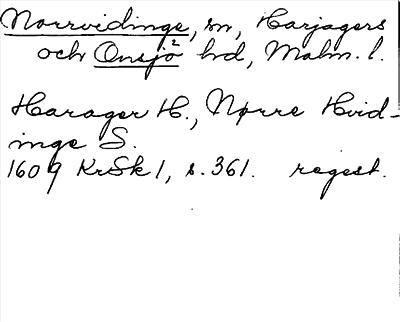 Norrvidinge, sn, Harjagers
och Onsjö² hd, Malm. l.
Harager H., Nørre Hvid-
inge S.
1609 KrSk 1, s. 361. regest.